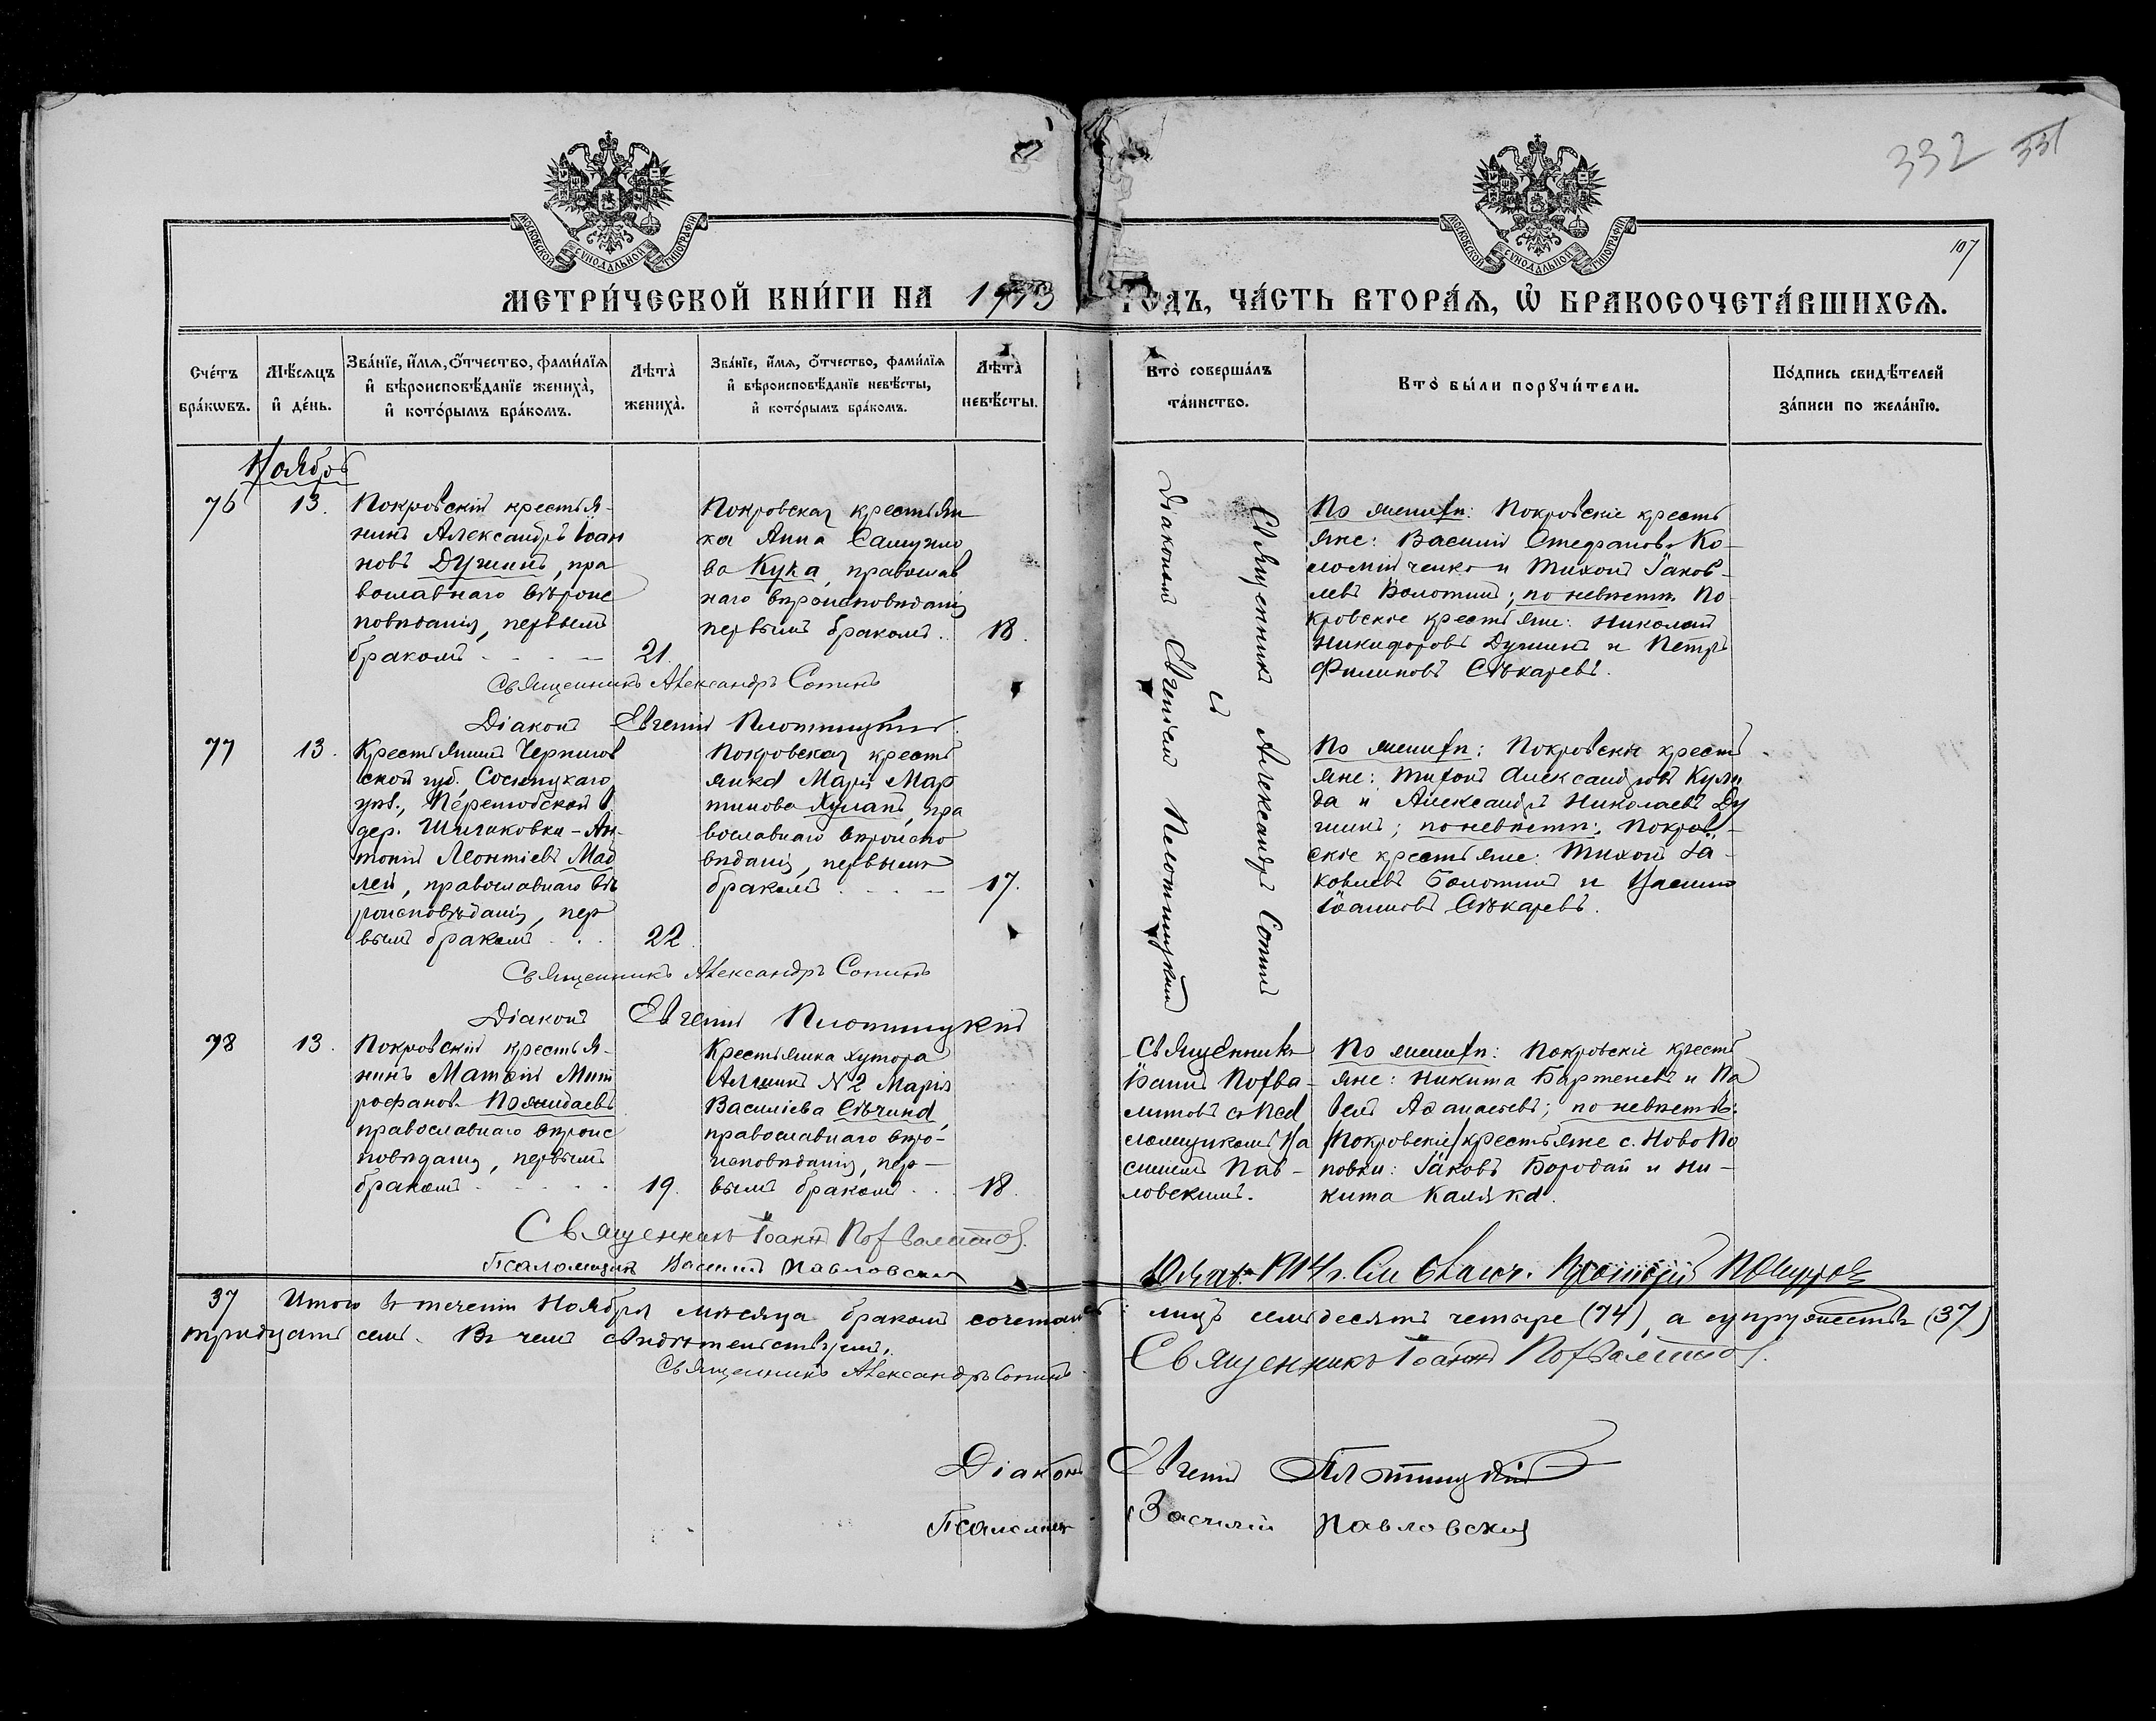 332 331
107
МОСКОВСКОЙ СѴНОДАЛЬНОЙ ТИПОГРАФІИ
МОСКОВСКОЙ СѴНОДАЛЬНОЙ ТИПОГРАФІИ
МЕТРИ́ЧЕСКОЙ КНИ́ГИ НА 1913 ГОДЪ, ЧА́СТЬ ВТОРА́Ѧ, Ѡ БРАКОСОЧЕТА́ВШИХСѦ.
Сче́тъ бра́кѡвъ.
Мѣ́сяцъ и де́нь.
Зва́нїе, и́мѧ, ѻ́тчество, фами́лїѧ и вѣроисповѣ́данїе жениха̀, и кото́рымъ бра́комъ.
Лѣта̀ жениха̀.
Зва́нїе, и́мѧ, ѻ́тчество, фами́лїѧ и вѣроисповѣ́данїе невѣ́сты, и кото́рымъ бра́комъ.
Лѣта̀ невѣ́сты.
Кто̀ соверша́лъ та́инство.
Кто̀ бы́ли порꙋчи́тели.
По́дпись свидѣ́телей за́писи по жела́нїю.
Ноябрь
76
13.
Покровскій крестья-
нинъ Александръ Іоан
новъ Душинъ, пра
вославнаго вѣроис
повѣданія, первымъ
бракомъ
21.
Покровская крестьян
ка Анна Самуило
ва Кука, православ
наго вѣроисповѣданія
первымъ бракомъ.
18.
Священникъ Александръ Сопинъ
съ
Діакономъ Евгеніемъ Плотницкимъ
По женихѣ: Покровскіе кресть
яне: Василій Стефановъ Ко-
ломійченко и Тихонъ Іаков-
левъ Болотинъ; по невѣстѣ: По-
кровскіе крестьяне: Николай
Никифоровъ Душинъ и Петръ
Филиповъ Сѣкаревъ.
Священникъ Александръ Сопинъ
Діаконъ Евгеній Плотницкій.
77
13.
Крестьянинъ Чернигов
ской губ. Сосницкаго
уѣз., Перелюбской в.
дер. Шишаковки - Ан-
тоній Леонтіевъ Мад
лей, православнаго вѣ
роисповѣданія, пер
вымъ бракомъ
22.
Покровская кресть
янка Марія Мар
тинова Хулапъ, пра
вославнаго вѣроиспо
вѣданія, первымъ
бракомъ
17.
По женихѣ: Покровскіе кресть
яне: Тихонъ Александровъ Кули
да и Александръ Николаевъ Ду
шинъ; по невѣстѣ: Покров-
скіе крестьяне: Тихонъ Іа-
ковлевъ Болотинъ и Василій
Іоанновъ Сѣкаревъ.
Священникъ Александръ Сопинъ
Діаконъ Евгеній Плотницкій
78
13.
Покровскій крестья-
нинъ Матѳій Мит
рофановъ Пожидаевъ
православнаго вѣроис
повѣданія, первымъ
бракомъ
19.
Крестьянка хутора
№ 2 Марія
Василіева
православнаго вѣро-
исповѣданія, пер-
вымъ бракомъ
18.
Священникъ
Іоаннъ Похва-
литовъ съ Пса
ломщикомъ Ва
силіемъ Пав-
ловскимъ.
По женихѣ: Покровскіе кресть
яне: Никита Бартеневъ и Па
велъ Аѳанасьевъ; по невѣстѣ:
/Покровскіе/ крестьяне с. Ново По
повки: Іаковъ Бородай и Ни-
кита Каляка.
Священникъ Іоаннъ Похвалитовъ.
Псаломщикъ Василій Павловскій
1914 г.
37 Итого въ теченіи Ноября мѣсяца бракомъ сочеталось лицъ семьдесятъ четыре (74), а супружествъ (37)
тридцать семь. Въ чемъ свидѣтельствуемъ.
Священникъ Александръ Сопинъ.
Священникъ Іоаннъ Похвалитовъ.
Діаконъ Евгеній Плотницкій
Псаломщ. Василій Павловскій